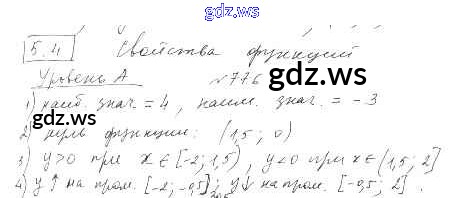 gdz.ws
5.4 Свойства функций
Уровень А №776
gdz.ws
1) наиб. знач. = 4, наим. знач. = -3
gdz.ws
2) нуль функции: (1,5; 0)
3) y>0 при x∈[-2; 1,5), y<0 при x∈(1,5; 2]
4) y↑ на пром. [-2; -0,5]; y↓ на пром. [-0,5; 2].